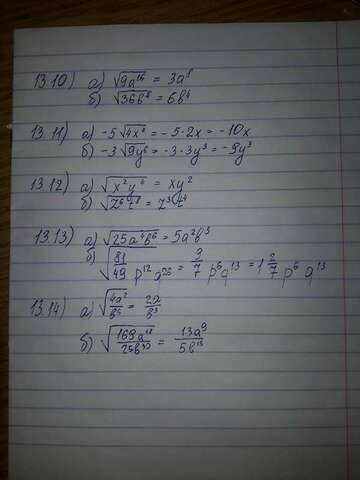 13.10) а) √9a¹⁶ = 3a⁸
б) √36b⁸ = 6b⁴
13.11) а) -5√4x² = -5·2x = -10x
б) -3√9y⁶ = -3·3y³ = -9y³
13.12) а) √x²y⁴ = xy²
б) √z⁶t⁸ = z³t⁴
13.13) а) √25a⁴b⁶ = 5a²b³
б) √81/49 p¹²q²⁶ = 9/7 p⁶q¹³ = 1 2/7 p⁶q¹³
13.14) а) √4a²/b⁶ = 2a/b³
б) √169a¹⁸/25b³⁰ = 13a⁹/5b¹⁵